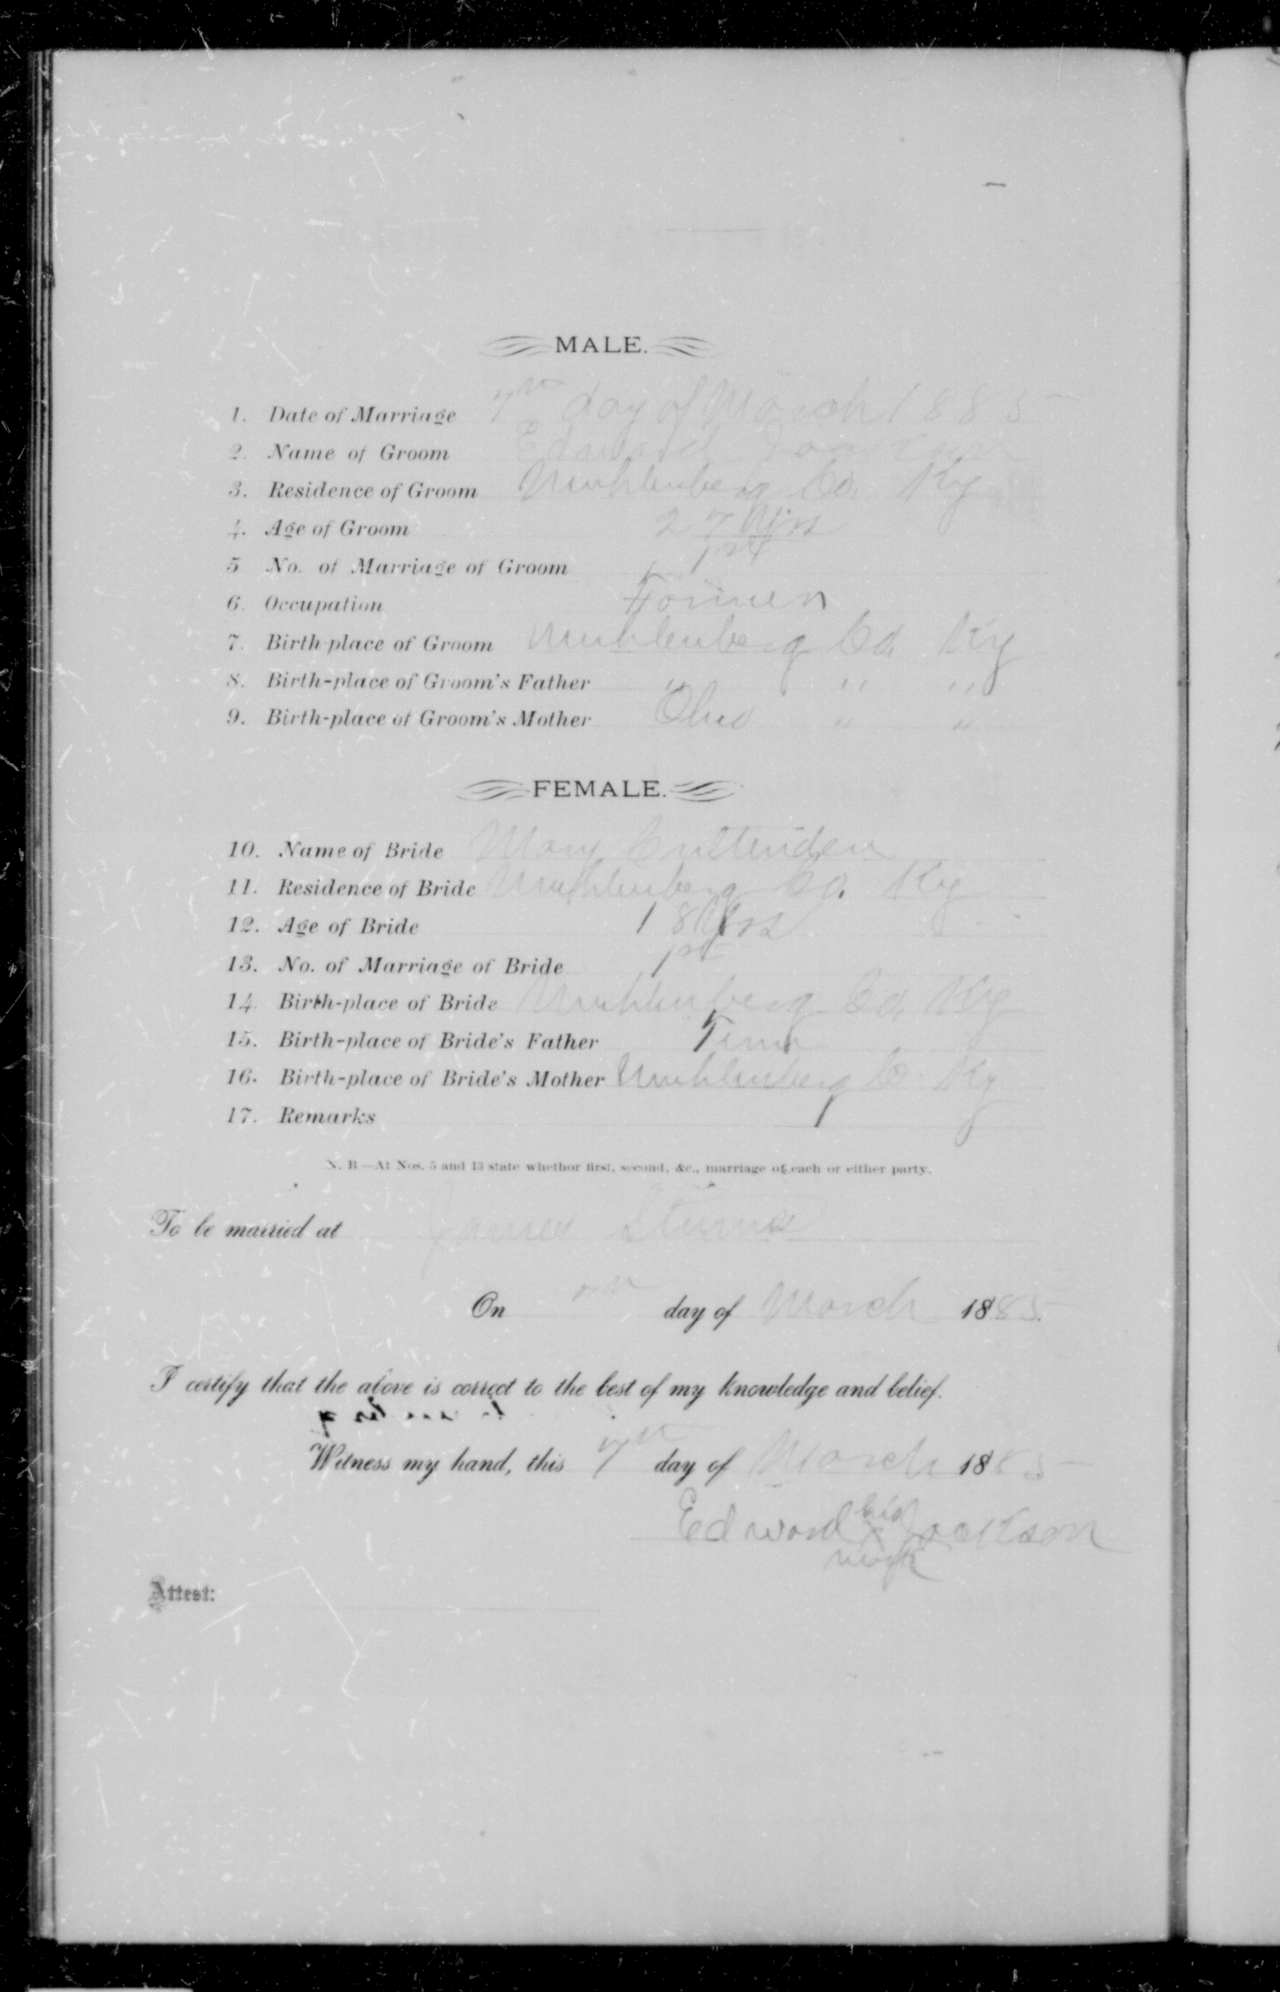 MALE.
1. Date of Marriage 7th day of March 1885
2. Name of Groom Edward Jackson
3. Residence of Groom Muhlenberg Co. Ky
4. Age of Groom 27 Yrs
5 No. of Marriage of Groom 1st
6. Occupation Farmer
7. Birth-place of Groom Muhlenberg Co. Ky
8. Birth-place of Groom's Father " " "
9. Birth-place of Groom's Mother Ohio " "
FEMALE.
10. Name of Bride Mary Crittenden
11. Residence of Bride Muhlenberg Co. Ky
12. Age of Bride 18 Yrs
13. No. of Marriage of Bride 1st
14. Birth-place of Bride Muhlenberg Co. Ky
15. Birth-place of Bride's Father Tenn
16. Birth-place of Bride's Mother Muhlenberg Co. Ky
17. Remarks
N. B.—At Nos. 5 and 13 state whethor first, second, &c., marriage of each or either party.
To be married at James
On day of March 1885.
I certify that the above is correct to the best of my knowledge and belief.
Witness my hand, this 7th day of March 1885
Edward his X mark Jackson
Attest: